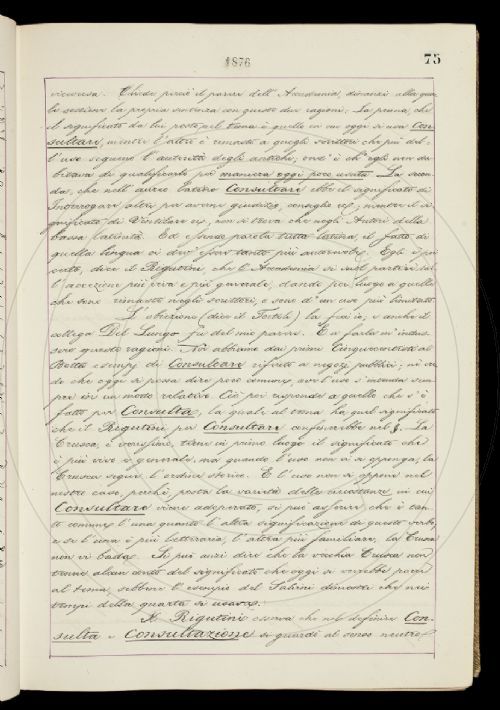 1876
75
viceversa. Chiede perciò il parere dell'Accademia, dinanzi alla qua-
le sostiene la propria sentenza con queste due ragioni: La prima, che
il significato da lui posto nel tema è quello in cui oggi si usa Con-
sultare, mentre l'altro è rimasto a quegli scrittori che più del-
l'uso seguono l'autorità degli antichi; ond'è ch'egli non du-
bitava di qualificarlo per maniera oggi poco usata. La secon-
da, che nell'aureo latino Consultare ebbe il significato di
Interrogare altri per averne giudizio, consiglio ec; mentre il si-
gnificato di Ventilare ec, non si trova che negli Autori della
bassa latinità. Ed essendo parola tutta latina, il fatto di
quella lingua ci dev'esser tanto più autorevole. Egli è pec-
cato, dice il Rigutini, che l'Accademia si suol partire dal-
l'accezione più viva e più generale, dando poi luogo a quella
che sono rimaste negli scrittori, o sono d'un uso più limitato.
L'obiezione (dice il Tortoli) la feci io, e anche il
collega Del Lungo fu del mio parere. E a farla m'indus-
sero queste ragioni. Noi abbiamo dai primi Cinquecentisti al
Botta esempj di Consultare riferito a negozj pubblici; nè cre-
do che oggi si possa dire poco comune, ove l'uso s'intenda sem-
pre in un modo relativo. Ciò poi risponde a quello che s'è
fatto per Consulta, la quale al tema ha quel significato
che il Rigutini per Consultare confinerebbe nel §. La
Crusca, è verissimo, tiene in primo luogo il significato che
è più vivo e generale, ma quando l'uso non vi si opponga; la
Crusca segue l'ordine storico. E l'uso non si oppone nel
nostro caso, perchè, posta la varietà delle circostanze in cui
Consultare viene adoperato, si può asserire che è tan-
to comune l'una quanto l'altra significazione di questo verbo,
e se l'una è più letteraria, l'altra più familiare, la Crusca
non vi bada. Si può anzi dire che la vecchia Crusca non
tenne alcun conto del significato che oggi si vorrebbe porre
al tema, sebbene l'esempio del Salvini dimostri che nei
tempi della quarta si usasse.
Il Rigutini osserva che nel definire Con-
sulta e Consultazione si guardò al senso neutro